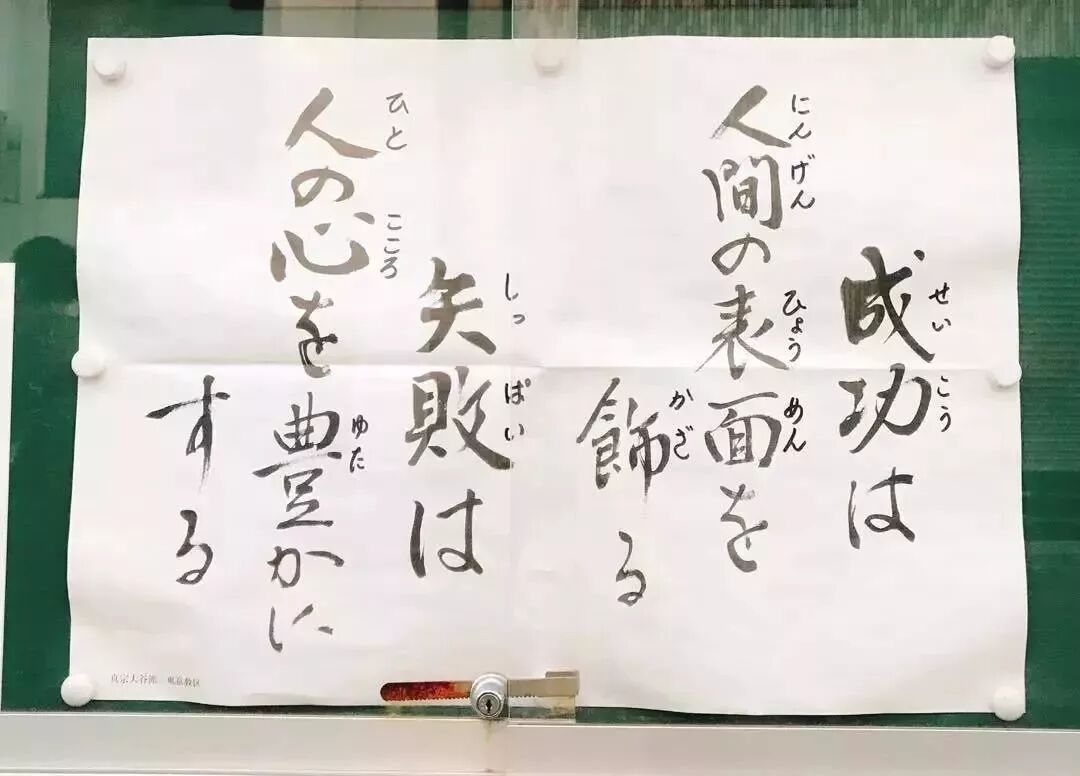 成功は
せいこう
人間の表面を
にんげん ひょうめん
飾る
かざ
失敗は
しっぱい
人の心を豊かに
ひと こころ ゆた
する
真宗大谷派 東京教区